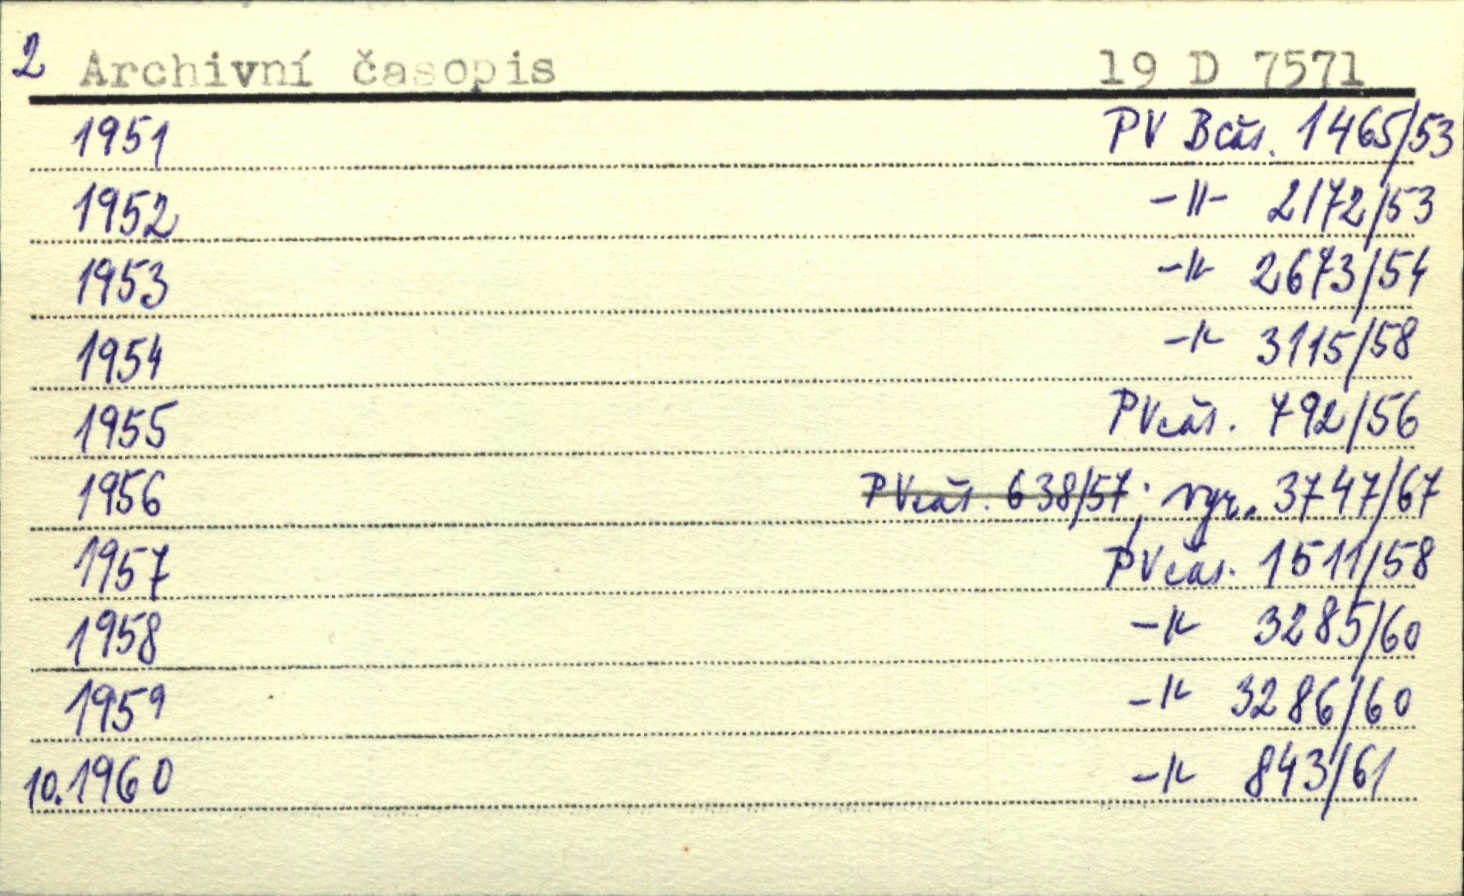 2 Archivní časopis 19 D 7571
1951 PV Bčas. 1465/53
1952 -II- 2172/53
1953 -II- 2673/54
1954 -II- 3115/58
1955 PVčas. 792/56
1956 PVčas. 638/57; vyř. 3747/67
1957 PVčas. 1511/58
1958 -II- 3285/60
1959 -II- 3286/60
10. 1960 -II- 843/61